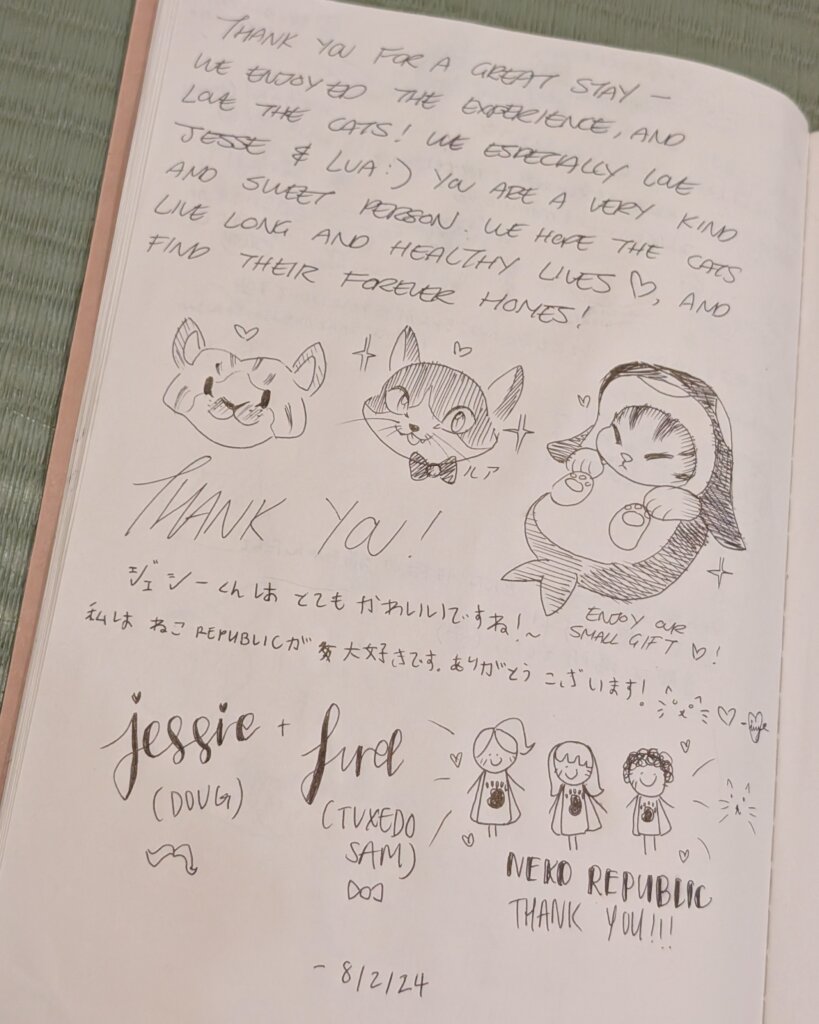 THANK YOU FOR A GREAT STAY —
WE ENJOYED THE EXPERIENCE, AND
LOVE THE CATS! WE ESPECIALLY LOVE
JESSE & LUA :) YOU ARE A VERY KIND
AND SWEET PERSON. WE HOPE THE CATS
LIVE LONG AND HEALTHY LIVES ♡, AND
FIND THEIR FOREVER HOMES!
ルア
THANK YOU!
ENJOY OUR
SMALL GIFT ♡!
ジェシーくんは とても かわいいですね!~
私は ねこ REPUBLICが 大好きです。ありがとう ございます!
jessie +
(DOUG)
(TUXEDO
SAM)
NEKO REPUBLIC
THANK YOU!!!
- 8/2/24